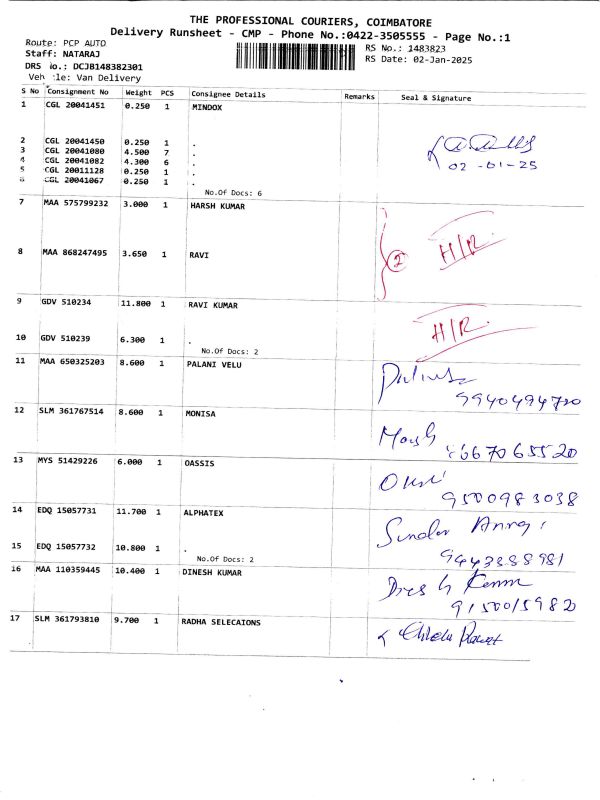 THE PROFESSIONAL COURIERS, COIMBATORE
Delivery Runsheet - CMP - Phone No.:0422-3505555 - Page No.:1
Route: PCP AUTO
RS No.: 1483823
Staff: NATARAJ
RS Date: 02-Jan-2025
DRS No.: DCJB148382301
Vehicle: Van Delivery
S No Consignment No Weight PCS Consignee Details Remarks Seal & Signature
1 CGL 20041451 0.250 1 MINDOX
2 CGL 20041450 0.250 1 .
3 CGL 20041080 4.500 7 .
4 CGL 20041082 4.300 6 .
5 CGL 20011128 0.250 1 .
6 CGL 20041067 0.250 1 .
02-01-25
No.Of Docs: 6
7 MAA 575799232 3.000 1 HARSH KUMAR
2 H/R
8 MAA 868247495 3.650 1 RAVI
9 GDV 510234 11.800 1 RAVI KUMAR
H/R
10 GDV 510239 6.300 1 .
No.Of Docs: 2
11 MAA 650325203 8.600 1 PALANI VELU
9940494720
12 SLM 361767514 8.600 1 MONISA
13 MYS 51429226 6.000 1 OASSIS
9500983038
14 EDQ 15057731 11.700 1 ALPHATEX
15 EDQ 15057732 10.800 1 .
No.Of Docs: 2
16 MAA 110359445 10.400 1 DINESH KUMAR
9150015982
17 SLM 361793810 9.700 1 RADHA SELECAIONS